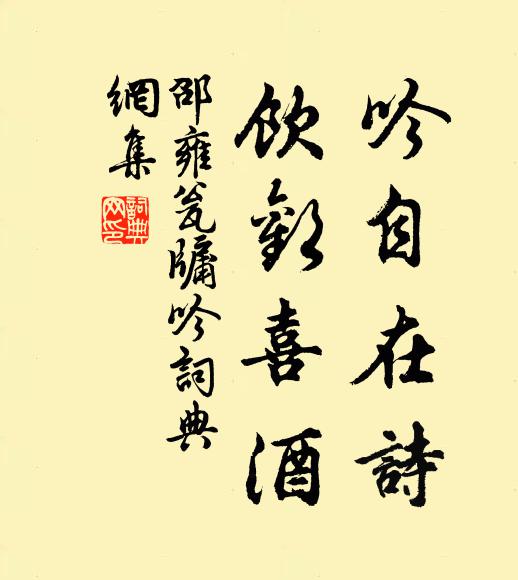 吟自在詩
飲歡喜酒
邵雍瓮牖吟詞典
網集
詞典
网印